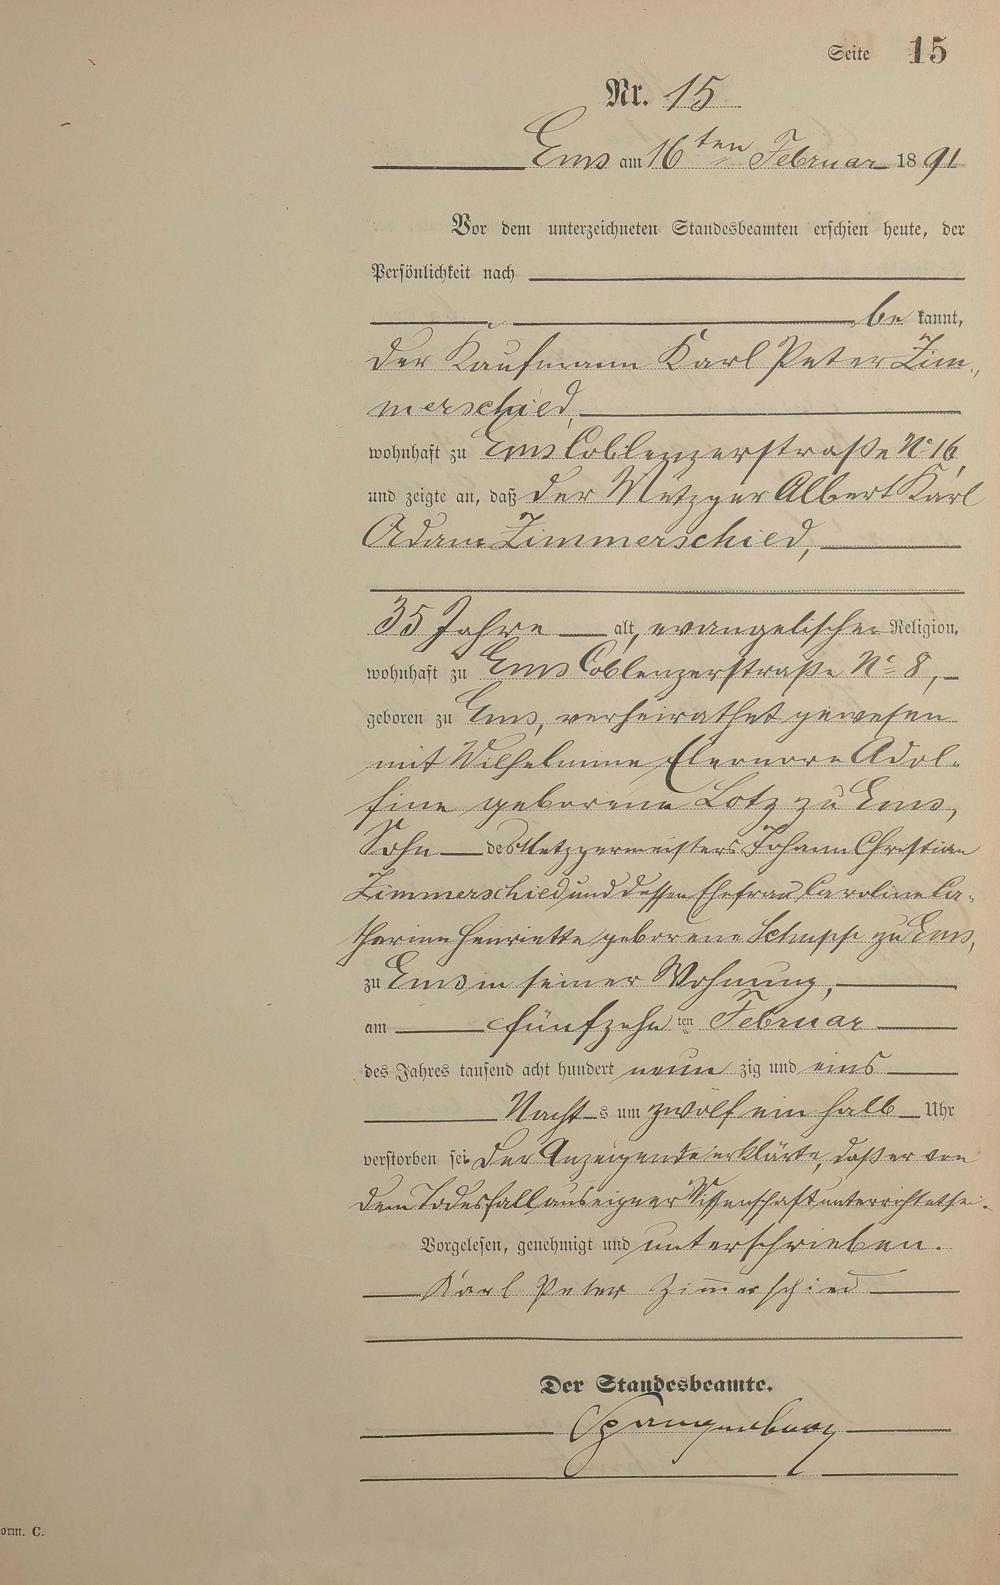 Seite 15
Nr. 15
Ems am 16ten Februar 1891
Vor dem unterzeichneten Standesbeamten erschien heute, der
Persönlichkeit nach
bekannt,
der Kaufmann Karl Peter Zim-
merschied,
wohnhaft zu Ems Coblenzerstraße No 16,
und zeigte an, daß der Metzger Albert Karl
Adam Zimmerschied,
35 Jahre alt, evangelischer Religion,
wohnhaft zu Ems Coblenzerstraße No 8,
geboren zu Ems, verheirathet gewesen
mit Wilhelmine Eleonore Adol-
fine geborene Lotz zu Ems,
Sohn des Metzgermeisters Johann Christian
Zimmerschied und dessen Ehefrau Caroline Ca-
tharine Henriette geborene Schupp zu Ems,
zu Ems in seiner Wohnung,
am fünfzehnten Februar
des Jahres tausend acht hundert neunzig und eins
Nachts um zwölf ein halb Uhr
verstorben sei. Der Anzeigende erklärte, daß er von
dem Todesfall aus eigner Wissenschaft unterrichtet sei.
Vorgelesen, genehmigt und unterschrieben.
Karl Peter Zimerschied
Der Standesbeamte.
Spangenberg
orm. C.